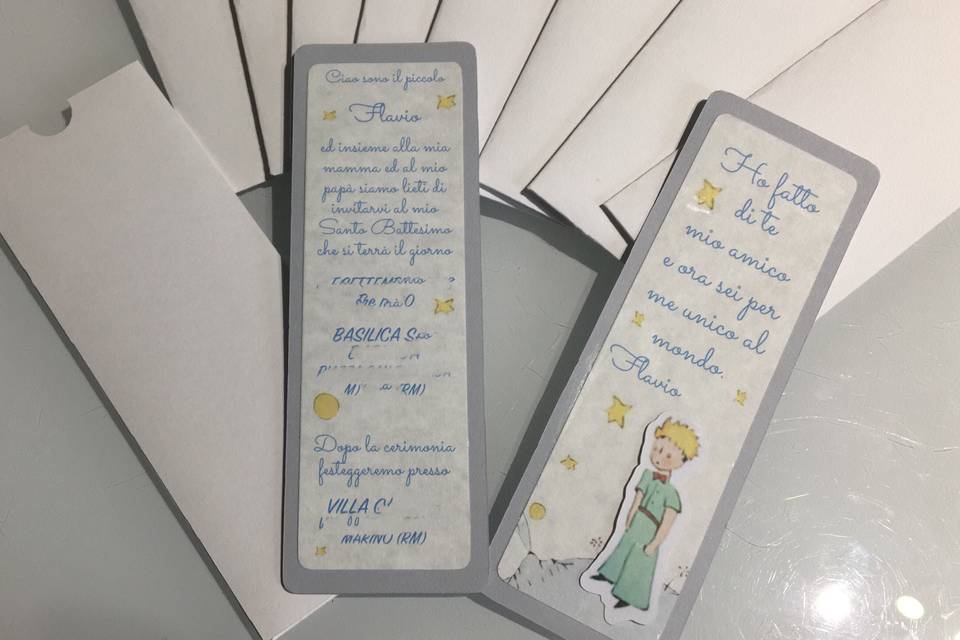 Ciao sono il piccolo
Flavio
ed insieme alla mia
mamma ed al mio
papà siamo lieti di
invitarvi al mio
Santo Battesimo
che si terrà il giorno
BASILICA
(RM)
Dopo la cerimonia
festeggeremo presso
VILLA
(RM)
Ho fatto
di te
mio amico
e ora sei per
me unico al
mondo.
Flavio